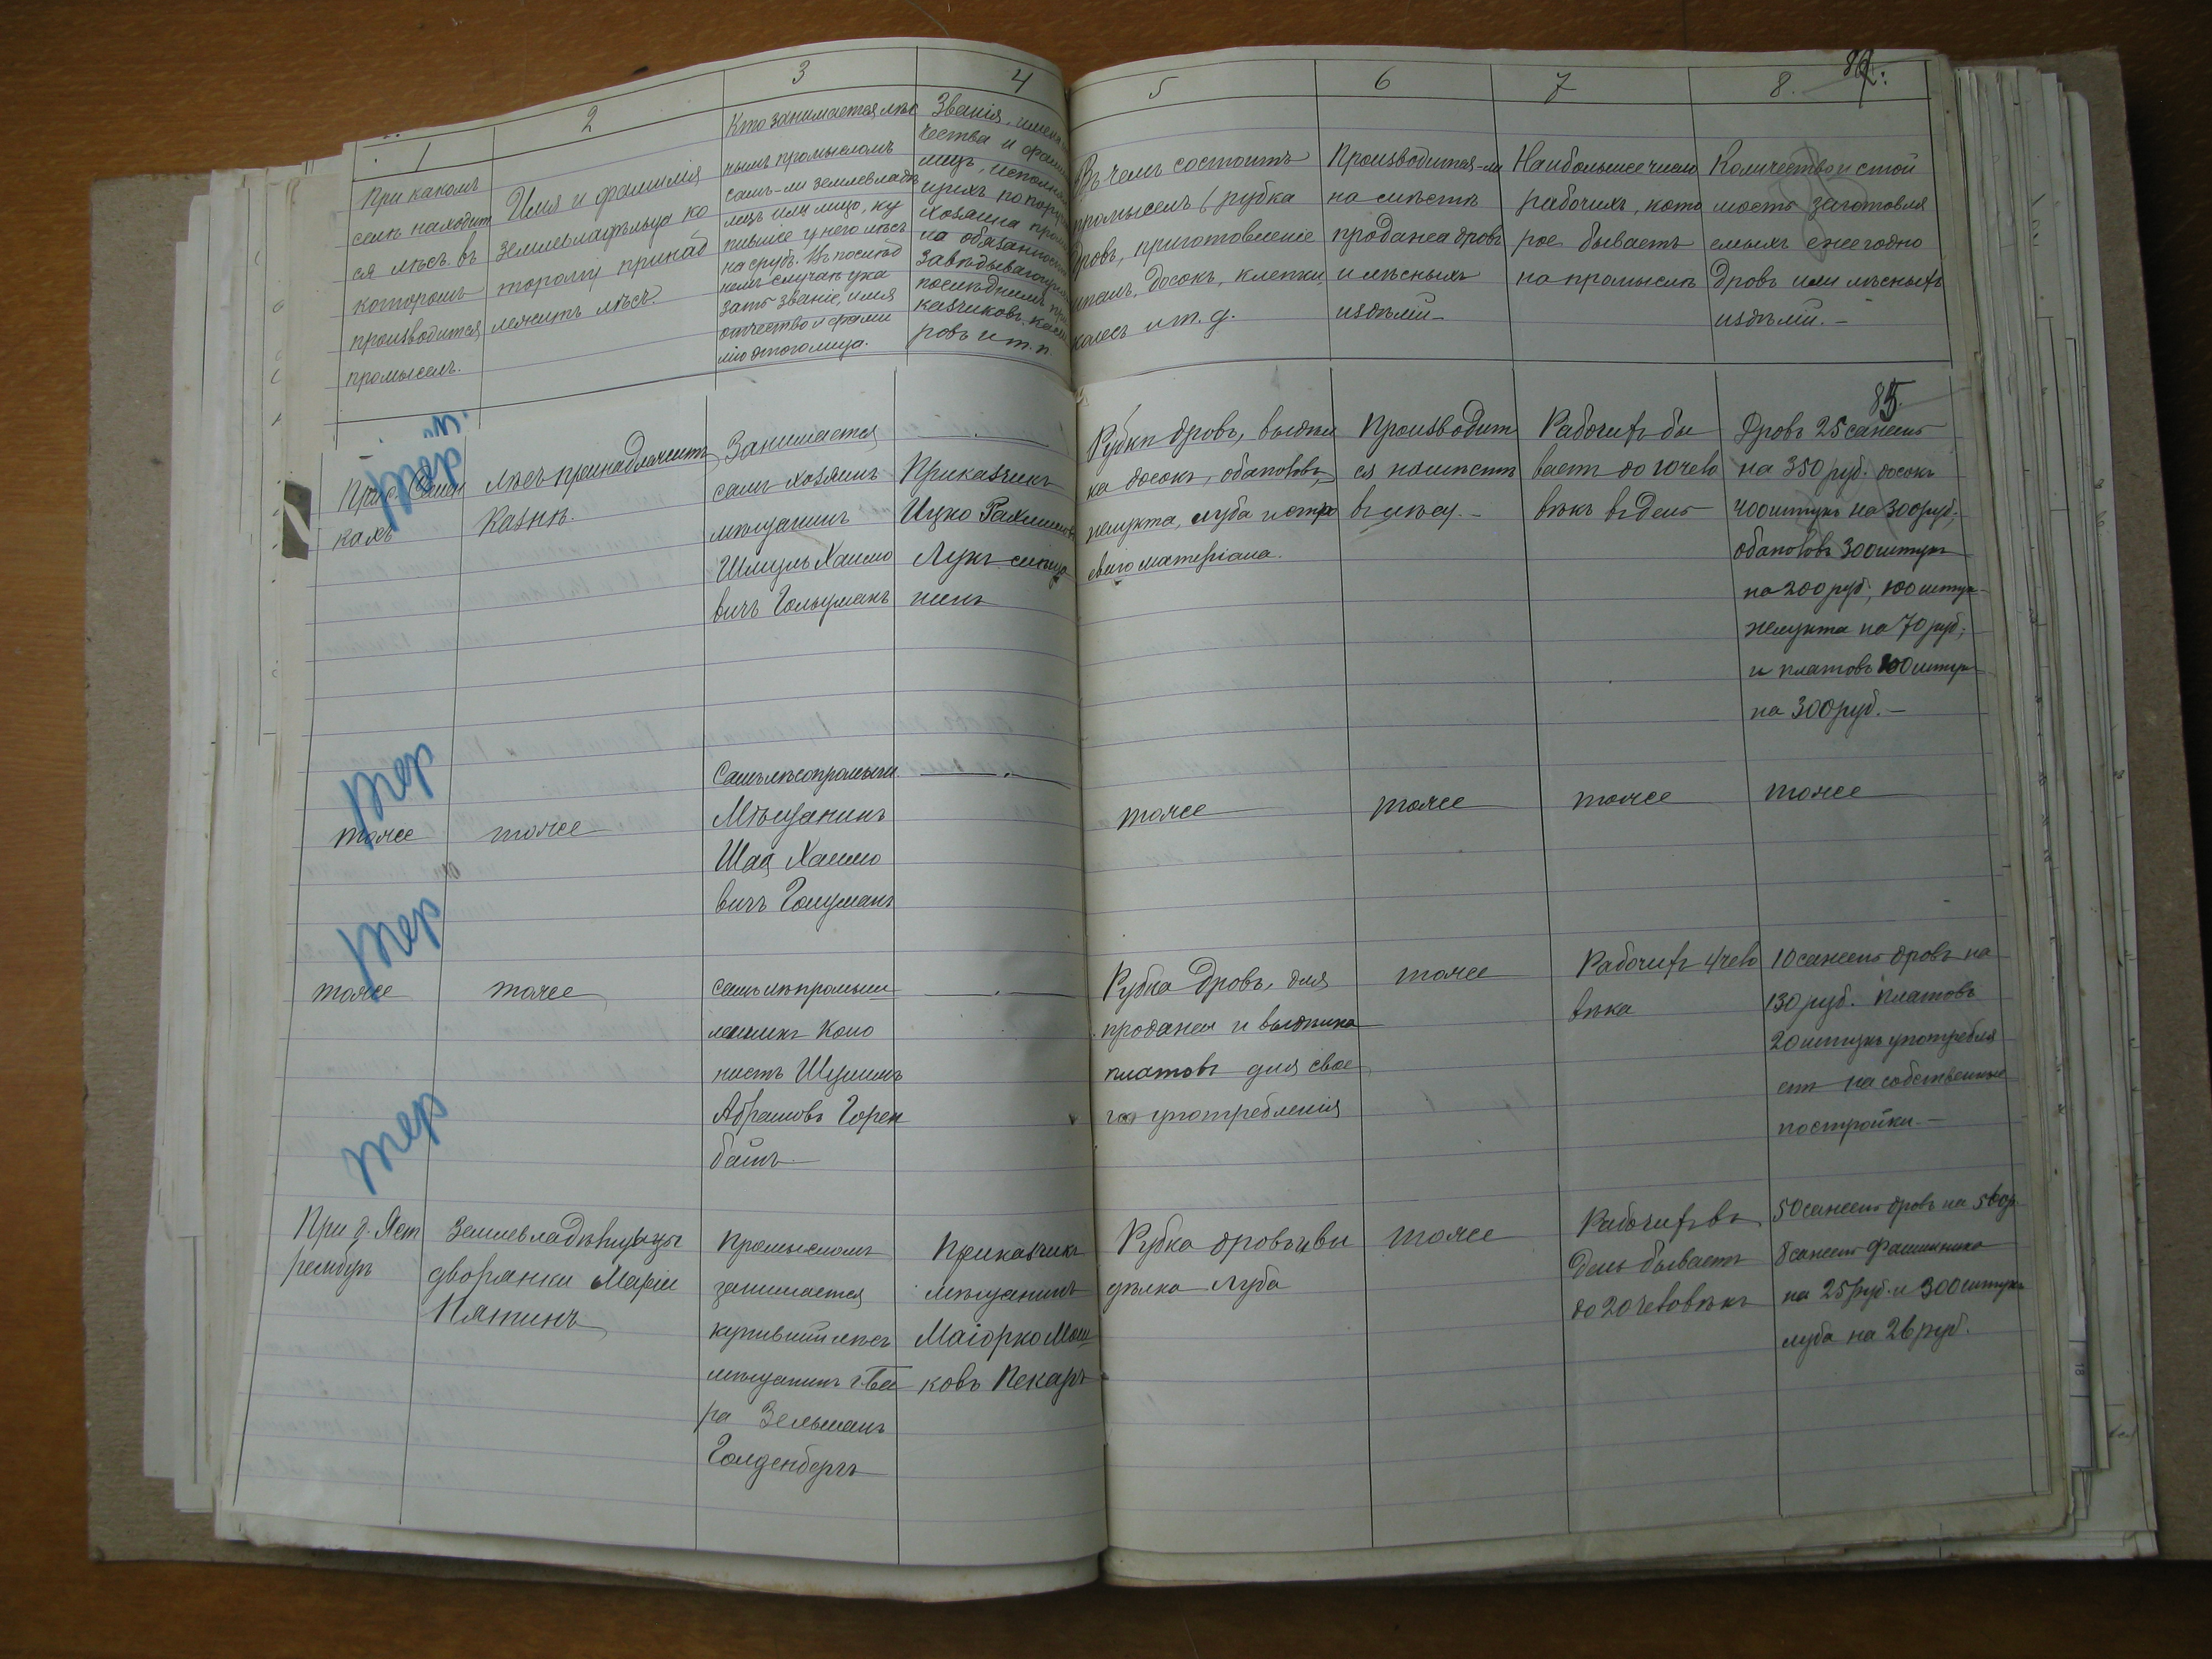 1
При какомъ
селѣ находит
ся лѣсъ въ
которомъ
производится
промыселъ.
2
Имя и фамилія
землевладѣльца ко
торому принад
лежитъ лѣсъ
3
Кто занимается лѣс
нымъ промысломъ
самъ-ли землевладѣ
лецъ или лицо, ку
пившее у него лѣсъ
на срубъ. Въ послѣд
немъ случаѣ ука
зать званіе, имя
отчество и фами
лію этого лица.
4
Званія, имена
чества и фами
лицъ, исполня
ющихъ по пору
хозяина промы
ла обязанности
завѣдывающихъ
послѣднимъ при
казчиковъ, касси
ровъ и т. п.
5
Въ чемъ состоитъ
промыселъ (рубка
дровъ, приготовленіе
шпалъ, досокъ, клепки,
колесъ и т. д.
6
Производится-ли
на мѣстѣ
продажа дровъ
и лѣсныхъ
издѣлій
7
Наибольшее число
рабочихъ, кото
рое бываетъ
на промыслѣ
8.
Количество и стои
мость заготовля
емыхъ ежегодно
дровъ или лѣсныхъ
издѣлій.
85.
кахъ
Лѣсъ принадлежитъ
Казнѣ.
Занимается
самъ хозяинъ
мѣщанинъ
Шмуль Хаимо
вичъ Гольцманъ
Приказчикъ
Ицко
Рубка дровъ, выдѣл
ка досокъ, обаполовъ,
лежукта, луба и стро
евого матеріала.
Производит
ся на мѣстѣ
въ лѣсу.
Рабочихъ бы
ваетъ до 10 чело
вѣкъ въ день
Дровъ 25 сажень
на 350 руб. досокъ
400 штукъ на 300 руб.,
обаполовъ 300 штукъ
на 200 руб., 100 штук
на 70 руб.;
и платовъ 100 штук
на 300 руб.
тер
тоже
тоже
Самъ лѣсопромышл.
Мѣщанинъ
Шая Хаимо
вичъ Гольцманъ
тоже
тоже
тоже
тоже
тер
тоже
тоже
Самъ лѣпромыш
ленникъ Коло
нистъ
Абрамовъ Горен
Рубка дровъ, для
продажи и выдѣлка
платовъ для свое
го употребленія
тоже
Рабочихъ 4 чело
вѣка
10 сажень дровъ на
130 руб. платовъ
20 штукъ употребля
етъ на собственные
постройки
тер
При д. Яст
рембух
Землевладѣлицы
дворянки Маріи
Пятинъ
Промысломъ
занимается
купившій лѣсъ
мѣщанинъ г. Ба
ра Зельманъ
Голденбергъ
Приказчикъ
Мѣщанинъ
Маіорко Мош
ковъ Пекарь
Рубка дровъ и вы
дѣлка луба
тоже
Рабочихъ въ
день бываетъ
до 20 человѣкъ
50 сажень дровъ на
6 сажень фашинника
на 25 руб. и 300 штукъ
луба на 26 руб.